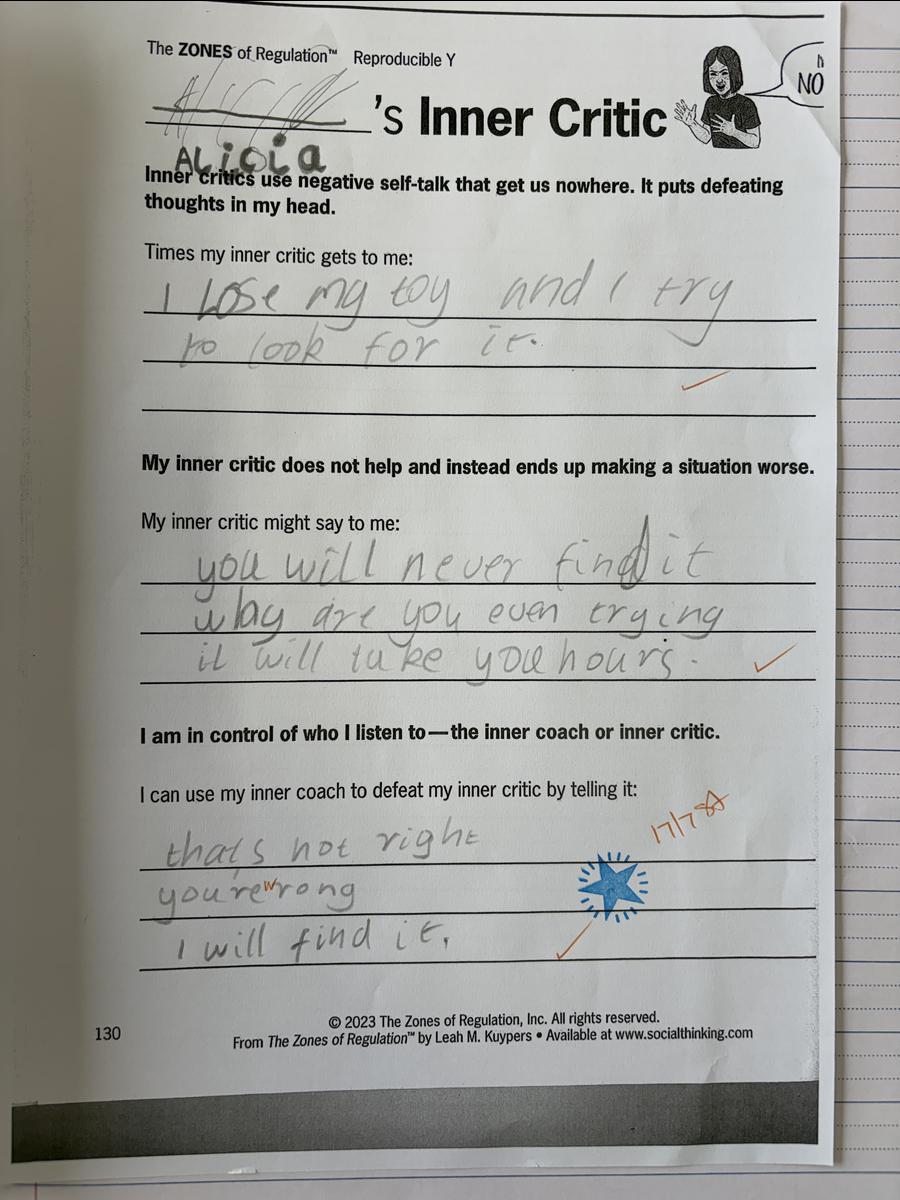 The ZONES of Regulation™ Reproducible Y
NO
's Inner Critic
ALicia
Inner critics use negative self-talk that get us nowhere. It puts defeating
thoughts in my head.
Times my inner critic gets to me:
I Lose my toy and I try
to look for it.
My inner critic does not help and instead ends up making a situation worse.
My inner critic might say to me:
you will never find it
why are you even trying
it will take you hours.
I am in control of who I listen to—the inner coach or inner critic.
I can use my inner coach to defeat my inner critic by telling it:
17/7
that's not right
you're wrong
I will find it.
© 2023 The Zones of Regulation, Inc. All rights reserved.
130
From The Zones of Regulation™ by Leah M. Kuypers • Available at www.socialthinking.com